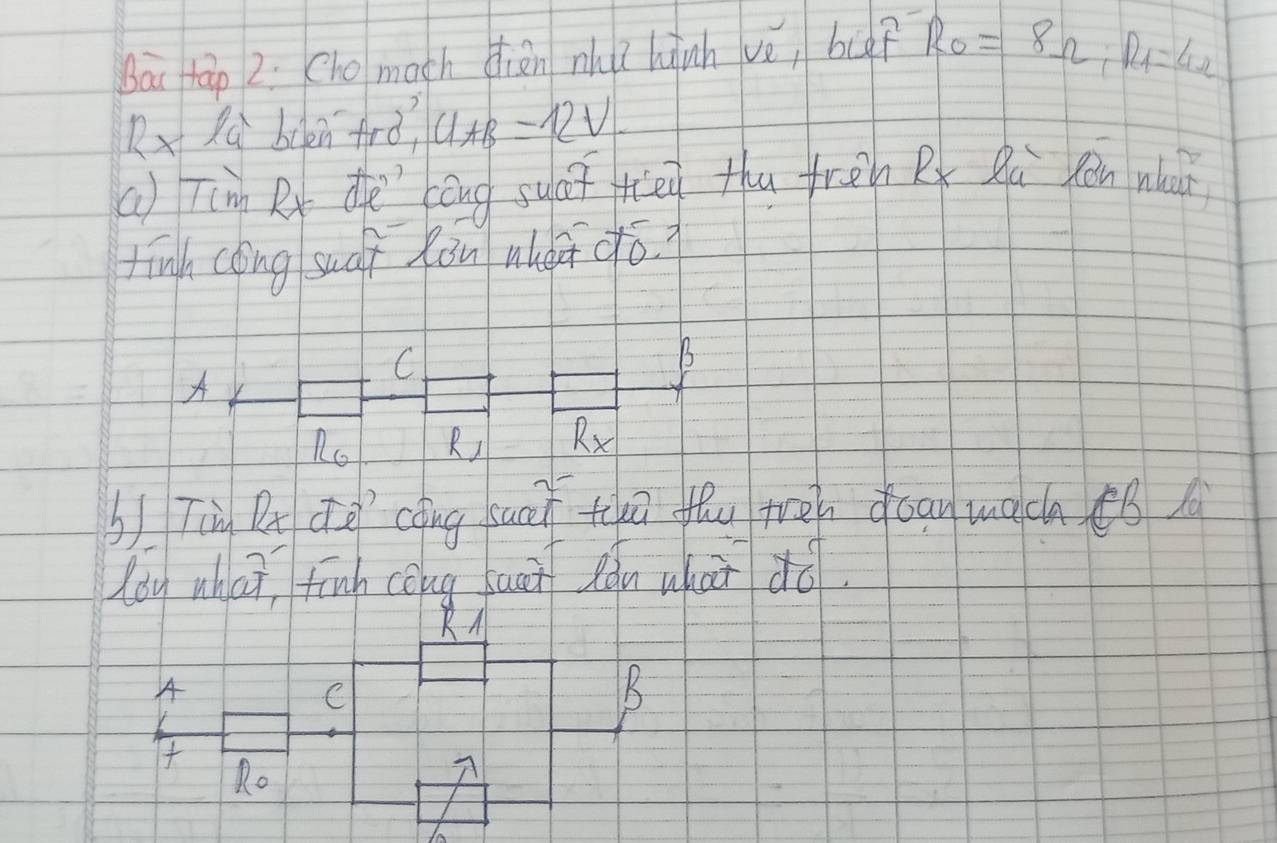 Bài tập 2: Cho mạch điện như hình vẽ, biết R0 = 8Ω; R1=4Ω
Rx là biến trở, UAB = 12V
a) Tìm Rx để công suất tiêu thụ trên Rx là lớn nhất,
tính công suất lớn nhất đó?
A C B
R0 R1 Rx
b) Tìm Rx để công suất tiêu thụ trên đoạn mạch CB là
lớn nhất, tính công suất lớn nhất đó.
R1
A C B
+
R0